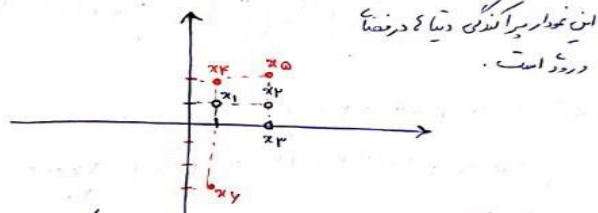 این نمودار پراکندگی دیتا ها در فضای
ورودی است.
x۴ x۵
x۱ x۲
x۳
x۶